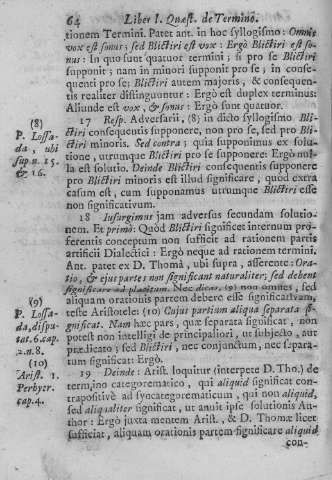 64 Liber I. Quæst. de Termino.
tionem Termini. Patet ant. in hoc syllogismo: Omnis
vox est sonus; sed Blictiri est vox: Ergò Blictiri est so-
nus: In quo sunt quatuor termini; si pro se Blictiri
supponit; nam in minori supponit pro se; in conse-
quenti pro se; Blictiri autem majoris, & consequen-
tis realiter distinguuntur: Ergò est duplex terminus:
Aliunde est vox, & sonus: Ergò sunt quatuor.
17 Resp. Adversarii, (8) in dicto syllogismo Bli-
ctiri consequentis supponere, non pro se, sed pro Bli-
ctiri minoris. Sed contra; quia supponimus ex solu-
tione, utrumque Blictiri pro se supponere: Ergò nul-
la est solutio. Deinde Blictiri consequentis supponere
pro Blictiri minoris est illud significare, quod extra
casum est, cum supponamus utrumque Blictiri esse
non significativum.
18 Insurgimus jam adversus secundam solutio-
nem. Et primò: Quòd Blictiri significet internum pro-
ferentis conceptum non sufficit ad rationem partis
artificii Dialectici: Ergò neque ad rationem termini.
Ant. patet ex D. Thoma, ubi supra, asserente: Ora-
tio, & ejus partes non significant naturaliter; sed debent
significare ad placitum. Nec dicas, (9) non omnes, sed
aliquam orationis partem debere esse significativam,
teste Aristotele: (10) Cujus partium aliqua separata si-
gnificat. Nam hæc pars, quæ separata significat, non
potest non intelligi de principaliori, ut subjecto, aut
prædicato; sed Blictiri, nec conjunctum, nec separa-
tum significat: Ergò.
19 Deinde: Arist. loquitur (interprete D. Tho.) de
termino categorematico, qui aliquid significat con-
trapositivè ad syncategorematicum, qui non aliquid,
sed aliqualiter significat, ut anuit ipse solutionis Au-
thor: Ergò juxta mentem Arist., & D. Thomæ licet
sufficiat, aliquam orationis partem significare aliquid
con-
(8)
P. Lossa-
da, ubi
sup. n. 15.
& 16.
(9)
P. Lossa-
da, dispu-
tat. 6. cap.
2. n. 8.
(10)
Arist. 1.
Perhyer.
cap. 4.